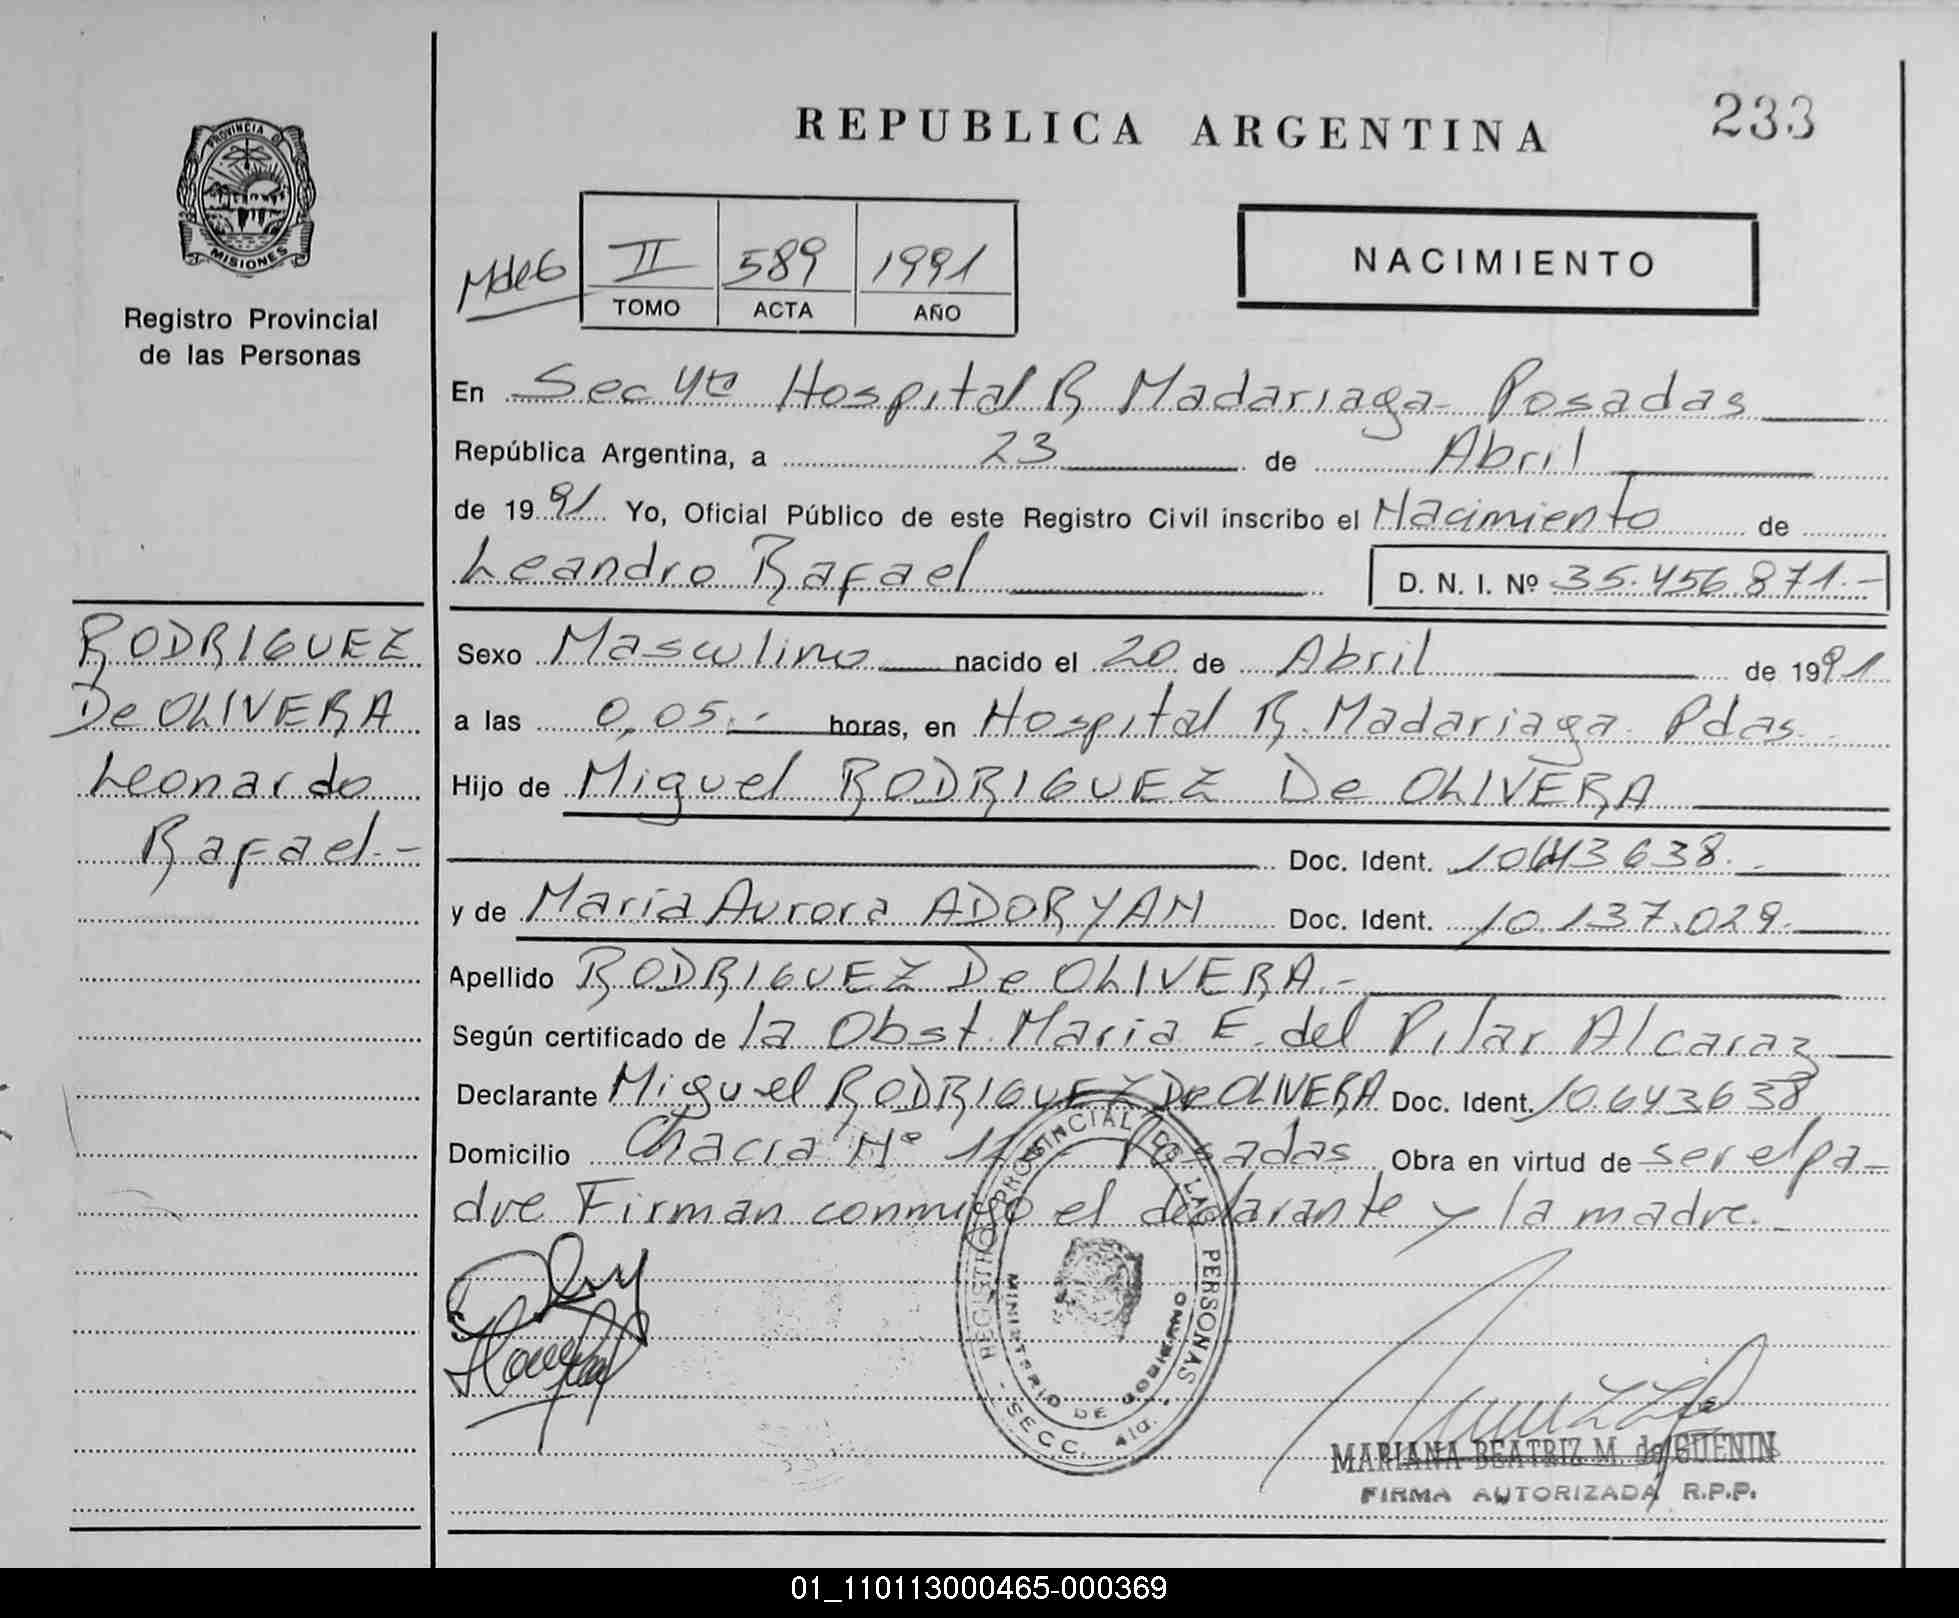 PROVINCIA DE
MISIONES
Registro Provincial
de las Personas
RODRIGUEZ
De OLIVERA
Leonardo
Rafael.-
REPUBLICA ARGENTINA
233
MdeG
II 589 1991
TOMO ACTA AÑO
NACIMIENTO
En Sec 4ta Hospital R Madariaga - Posadas
República Argentina, a 23 de Abril
de 1991 Yo, Oficial Público de este Registro Civil inscribo el Nacimiento de
Leandro Rafael D. N. I. Nº 35.456.871.-
Sexo Masculino nacido el 20 de Abril de 1991
a las 0,05.- horas, en Hospital R. Madariaga. Pdas.
Hijo de Miguel RODRIGUEZ De OLIVERA
Doc. Ident. 10643638.-
y de Maria Aurora ADORYAN Doc. Ident. 10.137.029.
Apellido RODRIGUEZ De OLIVERA.-
Según certificado de la Obst. Maria E. del Pilar Alcaraz
Declarante Miguel RODRIGUEZ De OLIVERA Doc. Ident. 10.643638
Domicilio Chacra Nº Posadas Obra en virtud de ser el pa-
dre Firman conmigo el declarante y la madre.-
REGISTRO PROVINCIAL DE LAS PERSONAS
MINISTERIO DE GOBIERNO
- SECC. 4ta. -
MARIANA BEATRIZ M. de GUENIN
FIRMA AUTORIZADA R.P.P.
01_110113000465-000369